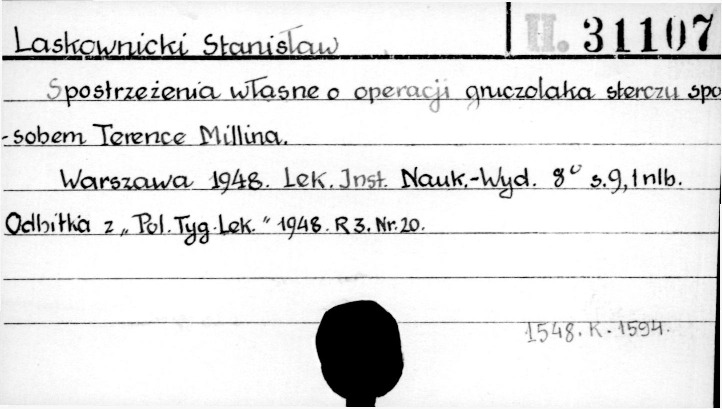 Laskownicki Stanisław II. 31107
Spostrzeżenia własne o operacji gruczolaka sterczu spo
-sobem Terence Millina.
Warszawa 1948. Lek. Inst. Nauk.-Wyd. 8° s.9, 1 nlb.
Odbitka z „Pol. Tyg. Lek." 1948. R 3. Nr. 20.
1548. K. 1594.